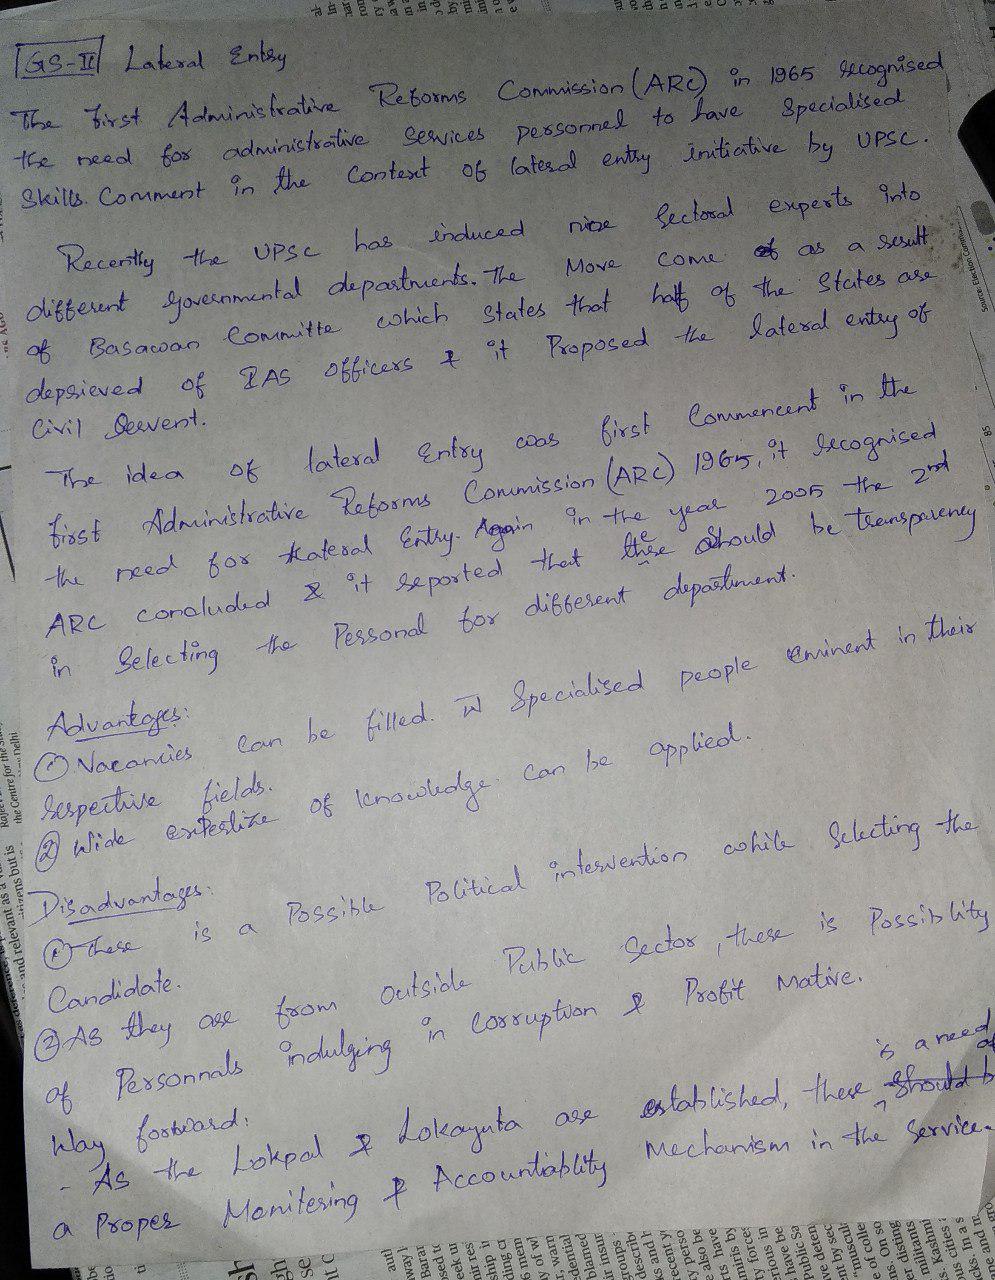 GS-II Lateral Entry
The first Administrative Reforms Commission (ARC) in 1965 recognised
the need for administrative services personnel to have specialised
skills. Comment in the context of lateral entry initiative by UPSC.
Recently the UPSC has induced nine sectoral experts into
different governmental departments. The move come as a result
of Basawan Committe which states that half of the states are
deprieved of IAS officers & it proposed the lateral entry of
civil servent.
The idea of lateral entry was first commencent in the
first Administrative Reforms Commission (ARC) 1965, it recognised
the need for lateral Entry. Again in the year 2005 the 2nd
ARC concluded & it reported that there should be transparency
in selecting the personal for different department.
Advantages:
① Vacancies can be filled. Specialised people eminent in their
respective fields.
② Wide expertize of knowledge can be applied.
Disadvantages:
① There is a possible political intervention while selecting the
candidate.
② As they are from outside public sector, there is possiblity
of personnals indulging in corruption & profit motive.
Way forward:
- As the Lokpal & Lokayuta are established, there is a need of
a proper monitering & Accountiablity mechanism in the service.